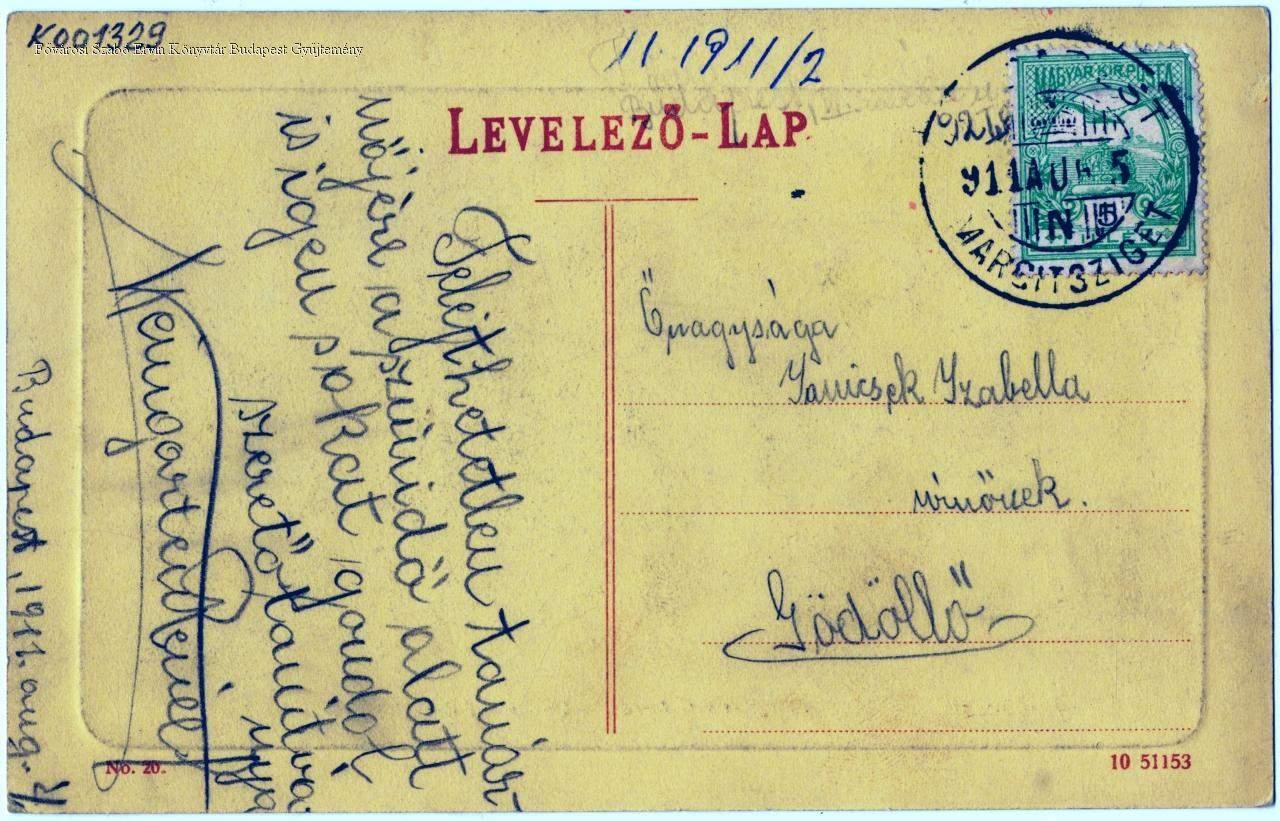 K001329
Fővárosi Szabó Ervin Könyvtár Budapest Gyűjtemény
11. 1911/2
LEVELEZŐ-LAP
MAGYAR KIR. POSTA
911 AUG 5
MARGITSZIGET
Felejthetetlen tanár-
nőjére a szünidő alatt
is igen sokat gondol
szerető tanítvá-
nya
Budapest, 1911. aug.
Őnagysága
Janicsek Izabella
úrnőnek.
Gödöllő
No. 20.
10 51153